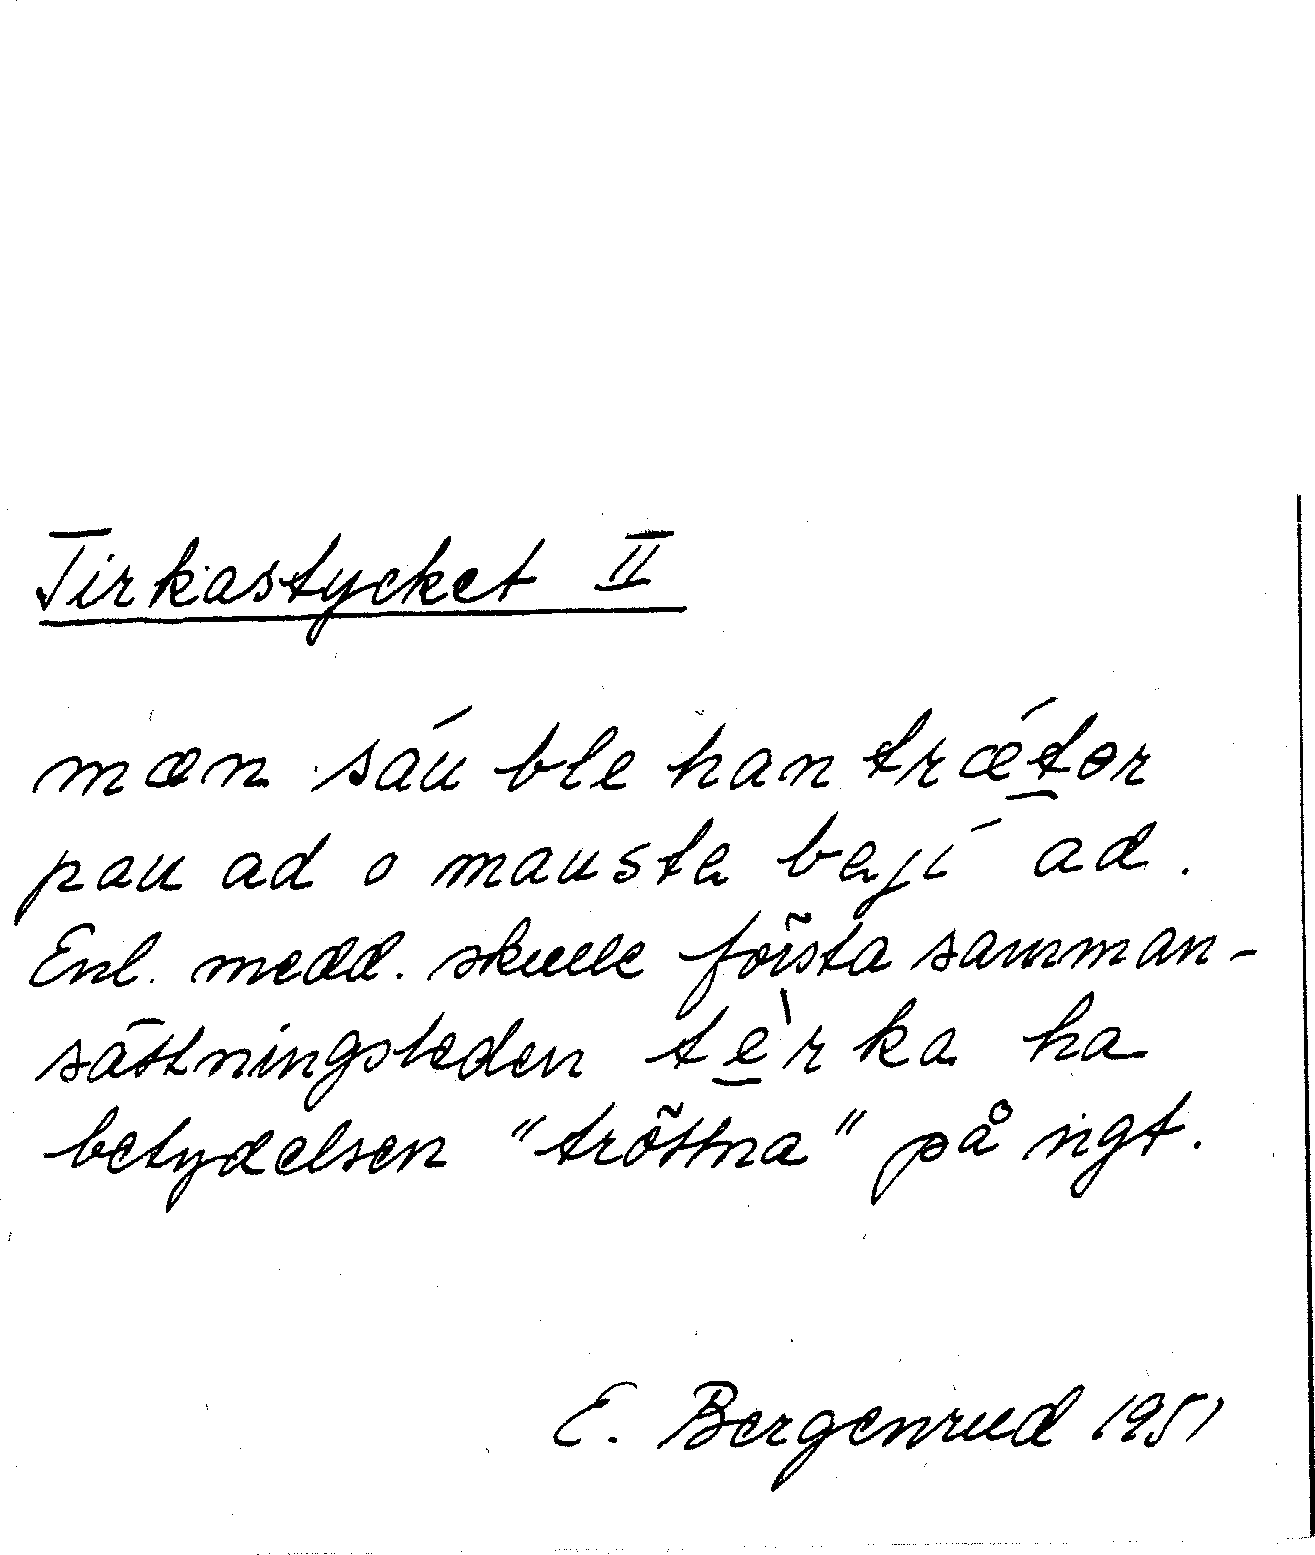 Tirkastycket II
mæn sáu ble han trǽt̲ər
pau ad o mausta bejí ad.
Enl. medd. skulle första samman-
sättningsleden tè̲rka ha
betydelsen "tröttna" på ngt.
E. Bergenrud 1951